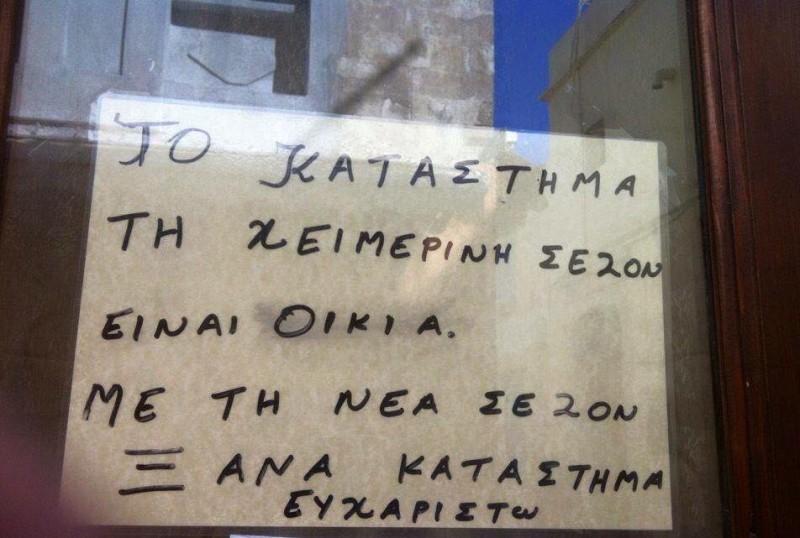 ΤΟ ΚΑΤΑΣΤΗΜΑ
ΤΗ ΧΕΙΜΕΡΙΝΗ ΣΕΖΟΝ
ΕΙΝΑΙ ΟΙΚΙΑ.
ΜΕ ΤΗ ΝΕΑ ΣΕΖΟΝ
ΞΑΝΑ ΚΑΤΑΣΤΗΜΑ
ΕΥΧΑΡΙΣΤΩ